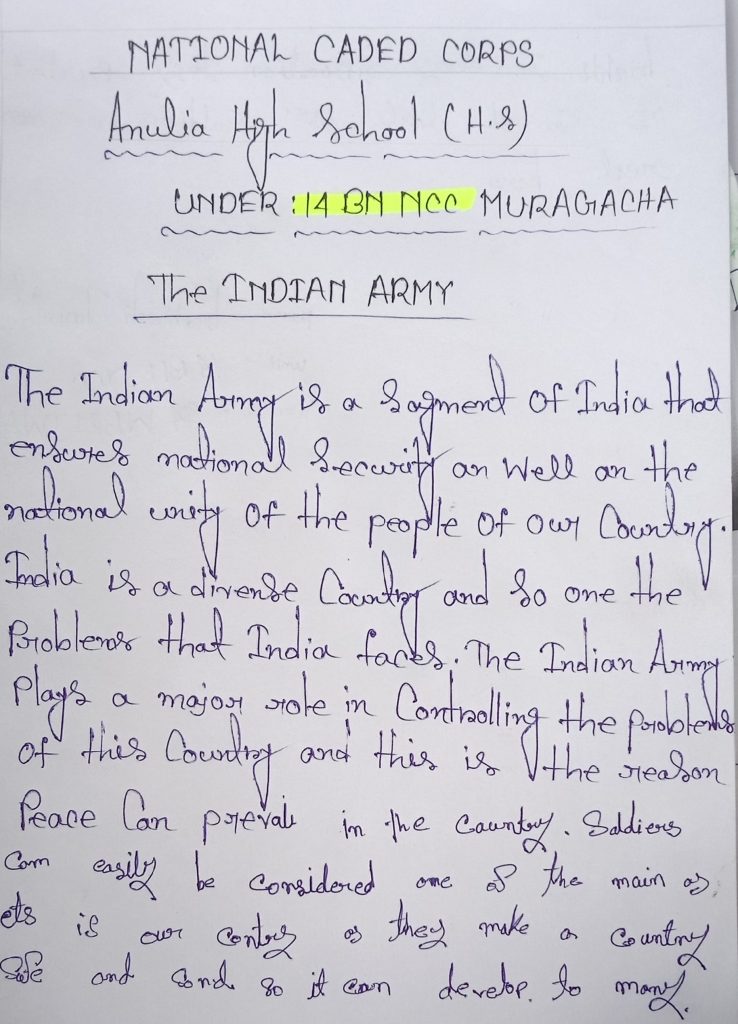 NATIONAL CADED CORPS
Anulia High School (H.S)
UNDER : 14 BN NCC MURAGACHA
The INDIAN ARMY
The Indian Army is a Sagment of India that
ensures national Security an well an the
national unity of the people of our Country.
India is a divense Country and so one the
Problems that India faces. The Indian Army
Plays a major role in Controlling the problems
of this Country and this is the reason
Peace Can prevail in the Cauntry. Soldiers
Can easily be considered one of the main as
ets is our contry as they make a country
Safe and so it can develop. to many.